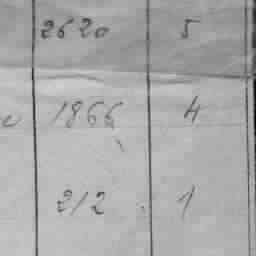 2620 5
1866 4
212 1